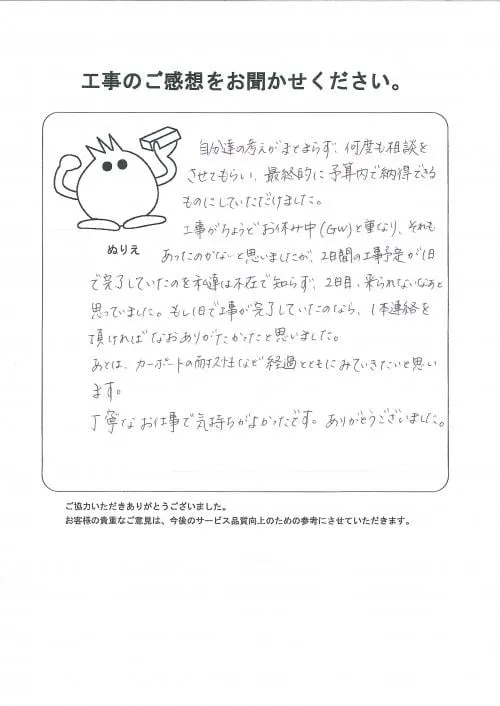 工事のご感想をお聞かせください。
自分達の考えがまとまらず、何度も相談を
させてもらい、最終的に予算内で納得できる
ものにしていただけました。
工事がちょうどお休み中(GW)と重なり、それも
あったのかないと思いましたが、2日間の工事予定が1日
で完了していたのを私達は不在で知らず、2日目、来られないなぁと
思っていました。もし1日で工事が完了していたのなら、1本連絡を
頂ければなおありがたかったと思いました。
あとは、カーポートの耐久性など経過とともにみていきたいと思い
ます。
丁寧なお仕事で気持ちがよかったです。ありがとうございました。
ぬりえ
ご協力いただきありがとうございました。
お客様の貴重なご意見は、今後のサービス品質向上のための参考にさせていただきます。